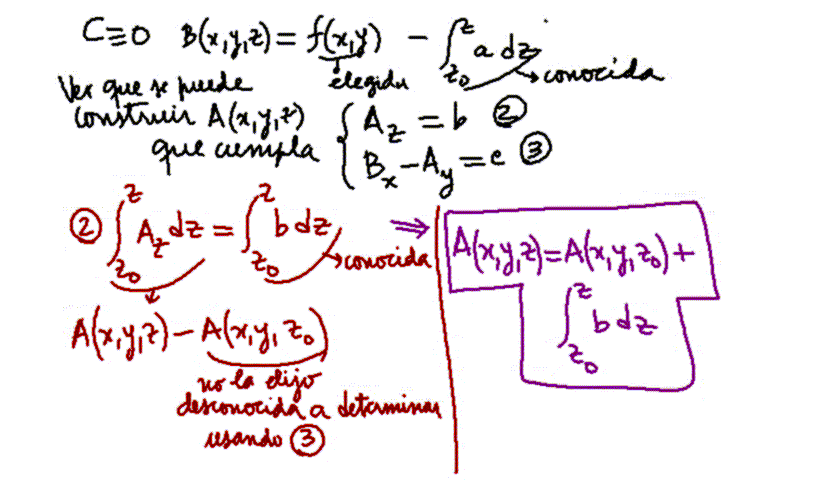 C≡0 B(x,y,z) = f(x,y) − ∫_{z₀}^{z} a dz
elegida → conocida
Ver que se puede
construir A(x,y,z)
que cumpla { A_z = b ②
B_x − A_y = c ③
② ∫_{z₀}^{z} A_z dz = ∫_{z₀}^{z} b dz ⇒
→ conocida
A(x,y,z) − A(x,y,z₀)
no la elijo
desconocida a determinar
usando ③
A(x,y,z) = A(x,y,z₀) +
∫_{z₀}^{z} b dz